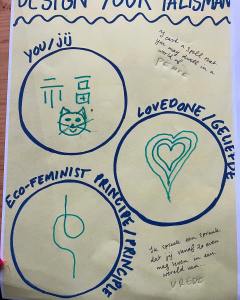 DESIGN YOUR TALISMAN
YOU/jij
I cast a spell that
you may dwell in a
world of
PEACE
福
LOVEDONE/GELIEFDE
ECO-FEMINIST PRINCIPE/PRINCIPLE
Ik spreek een spreuk
dat jij vanaf zo even
mag leven in een
wereld van
VREDE